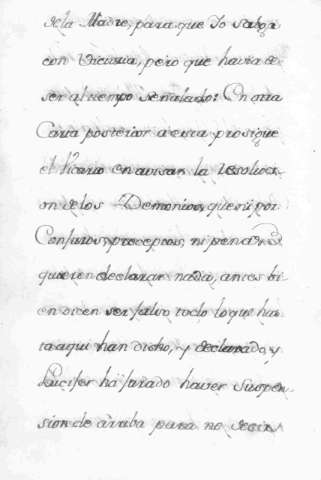 de la Madre, para que Yo salga
con Vicuria, pero que havia de
ser al tiempo señalado: En otra
Carta posterior a esta prosigue
el Vicario en avisar la resoluci-
on de los Demonios, que ni por
Conjuros, preceptos, ni penas
quieren declarar nada, antes bi-
en dicen ser falso todo lo que has-
ta aqui han dicho, y declarado, y
Lucifer ha jurado haver suspen-
sion de arriba para no decir